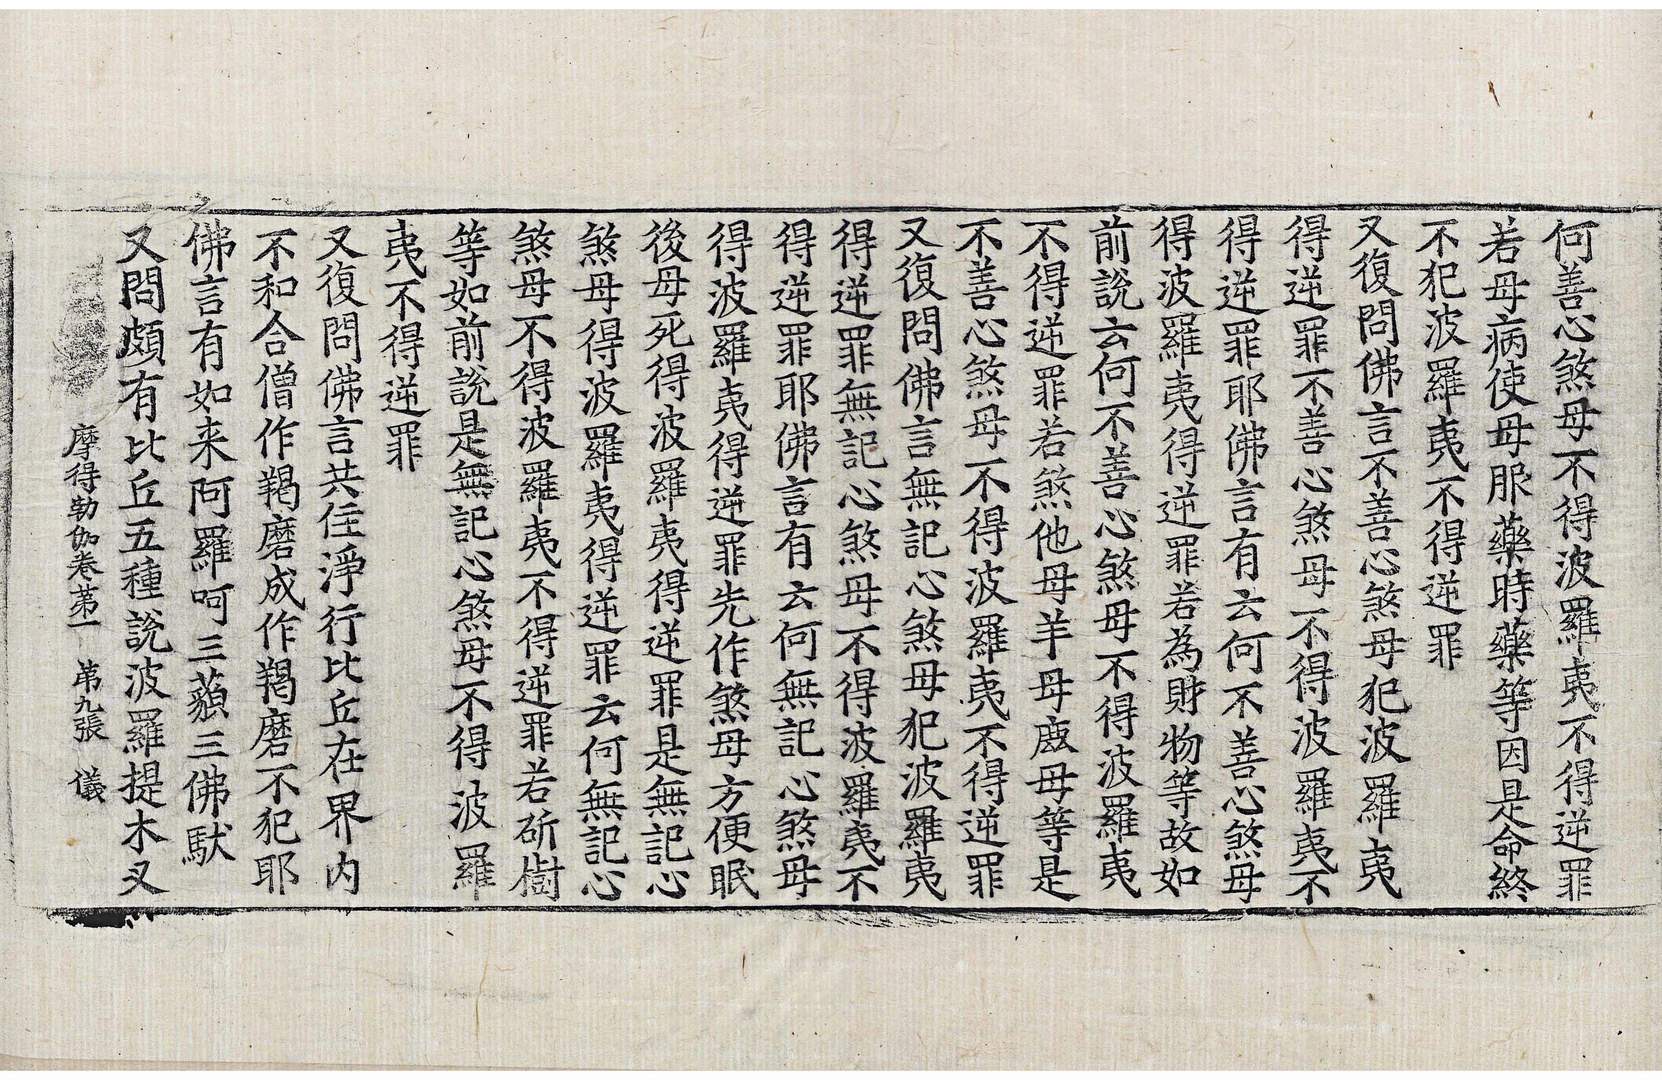 何善心煞母不得波羅夷不得逆罪
若母病使母服藥時藥等因是命終
不犯波羅夷不得逆罪
又復問佛言不善心煞母犯波羅夷
得逆罪不善心煞母不得波羅夷不
得逆罪耶佛言有云何不善心煞母
得波羅夷得逆罪若為財物等故如
前說云何不善心煞母不得波羅夷
不得逆罪若煞他母羊母鹿母等是
不善心煞母不得波羅夷不得逆罪
又復問佛言無記心煞母犯波羅夷
得逆罪無記心煞母不得波羅夷不
得逆罪耶佛言有云何無記心煞母
得波羅夷得逆罪先作煞母方便眠
後母死得波羅夷得逆罪是無記心
煞母得波羅夷得逆罪云何無記心
煞母不得波羅夷不得逆罪若斫樹
等如前說是無記心煞母不得波羅
夷不得逆罪
又復問佛言共住淨行比丘在界內
不和合僧作羯磨成作羯磨不犯耶
佛言有如来阿羅呵三藐三佛馱
又問頗有比丘五種說波羅提木叉
摩得勒伽卷第一 第九張 儀